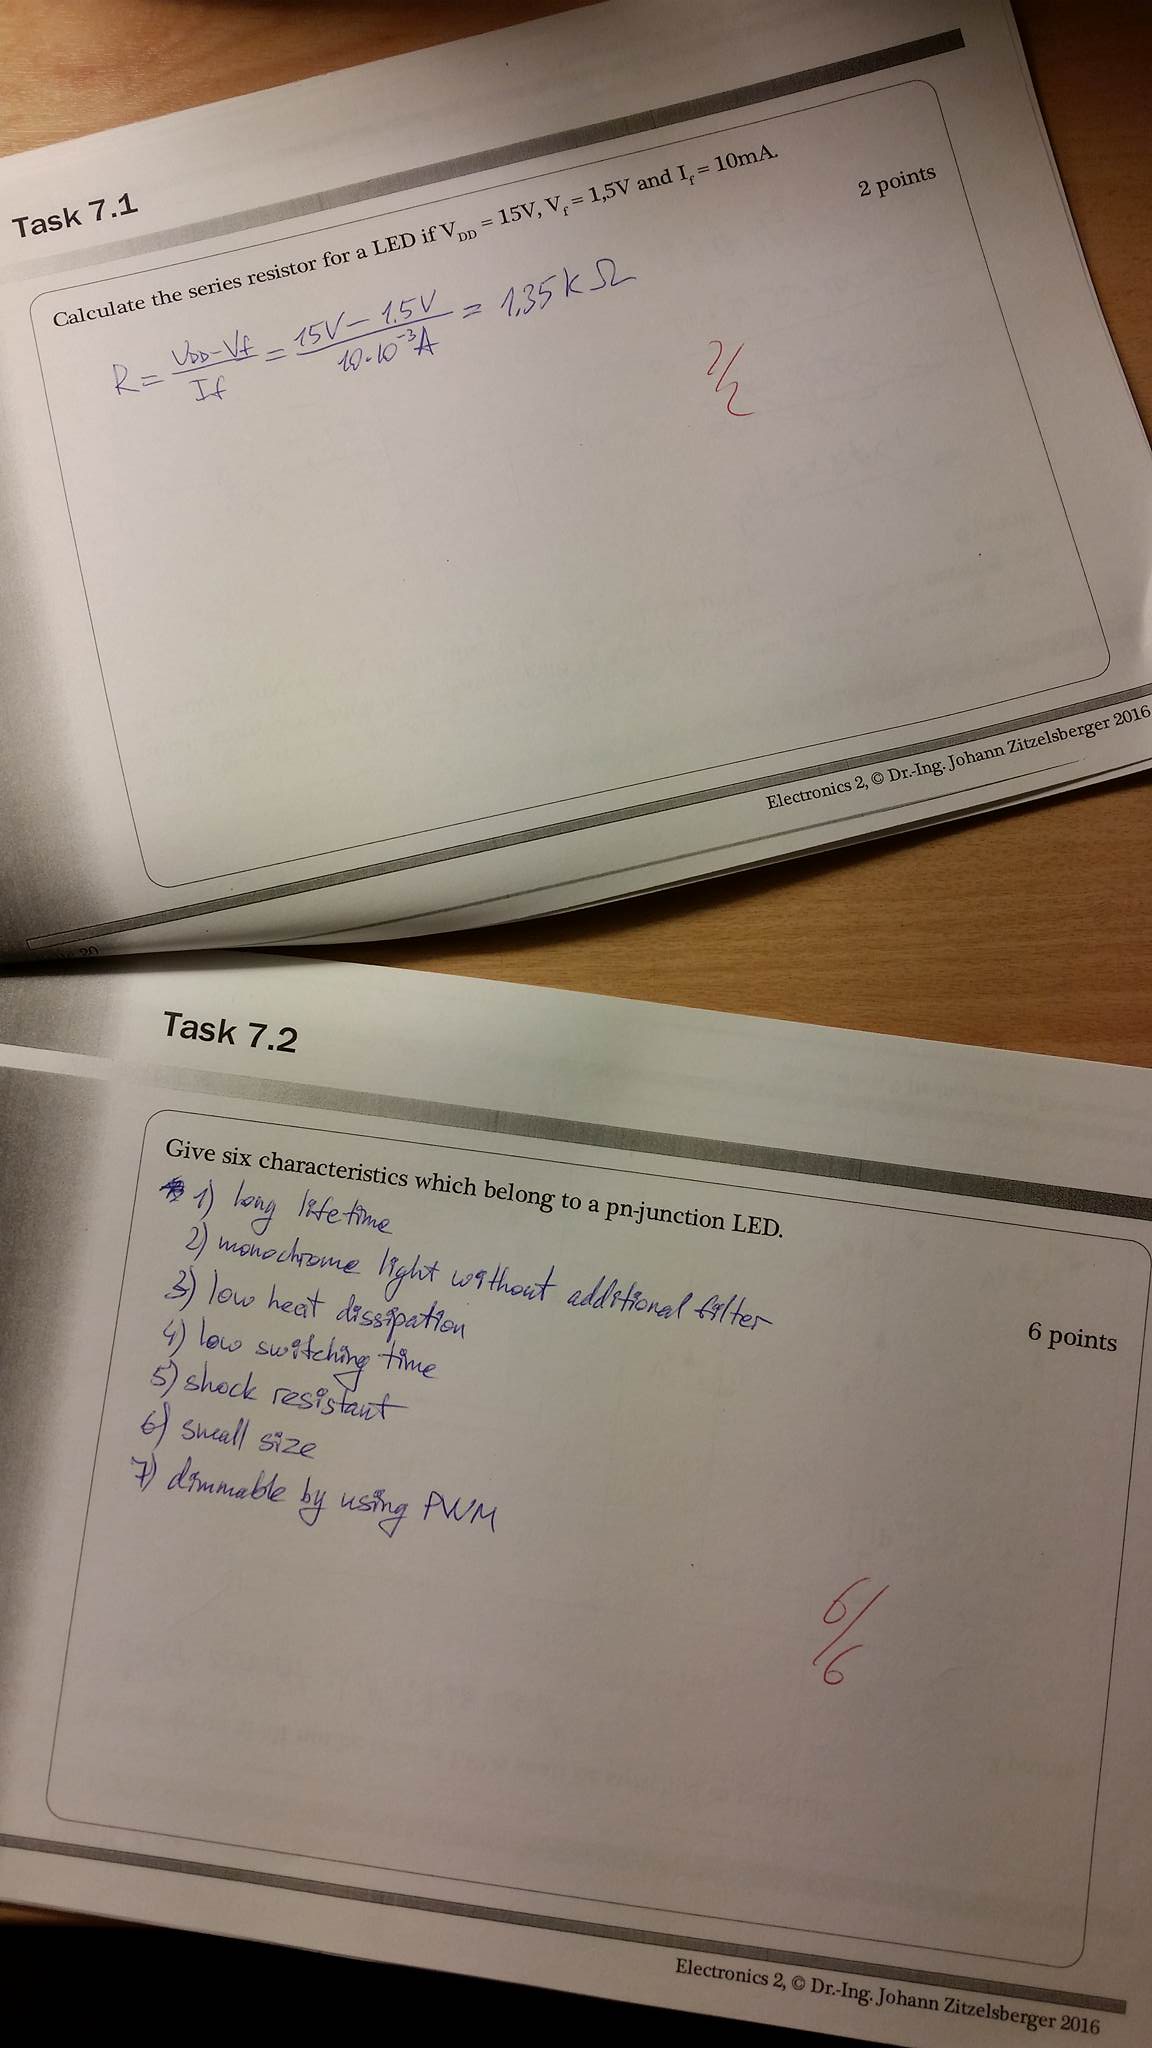 Task 7.1
Calculate the series resistor for a LED if V_DD = 15V, V_f = 1,5V and I_f = 10mA.
2 points
R = (V_DD - V_f) / I_f = (15V - 1.5V) / (10·10^-3 A) = 1,35 kΩ
2/2
Electronics 2, © Dr.-Ing. Johann Zitzelsberger 2016
Task 7.2
Give six characteristics which belong to a pn-junction LED.
6 points
1) long lifetime
2) monochrome light without additional filter
3) low heat dissipation
4) low switching time
5) shock resistant
6) small size
7) dimmable by using PWM
6/6
Electronics 2, © Dr.-Ing. Johann Zitzelsberger 2016